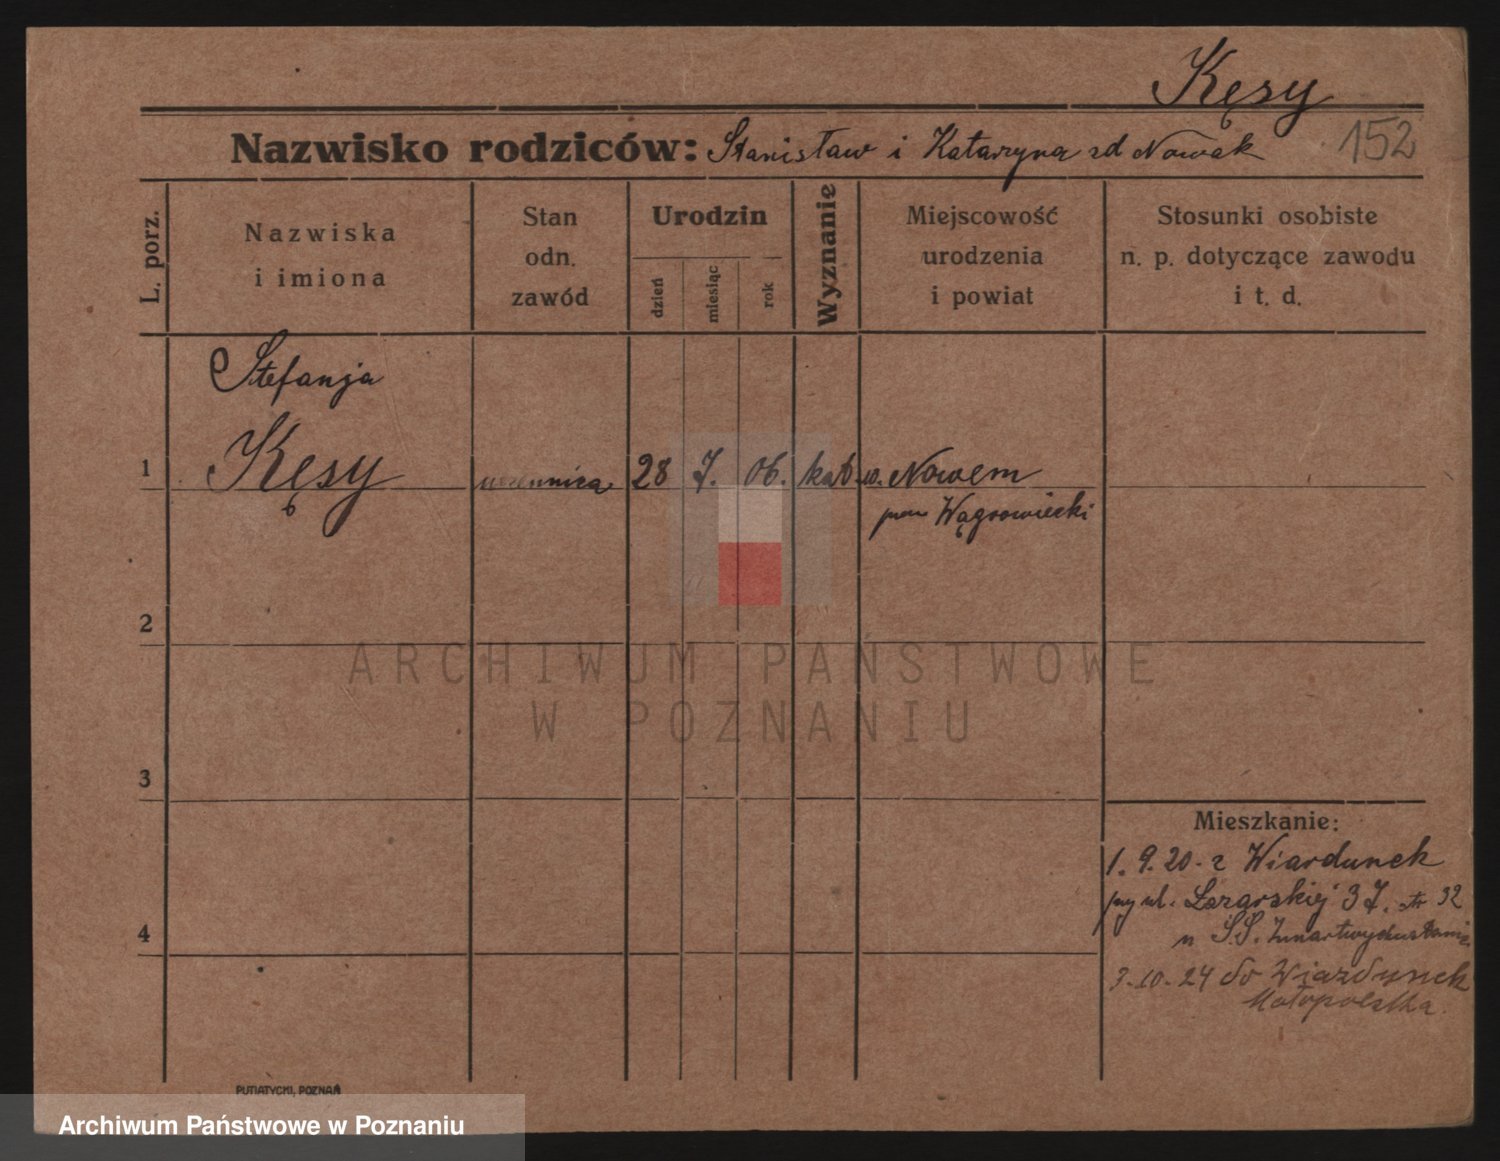 Kęsy
Nazwisko rodziców: Stanisław i Katarzyna zd Nowak
152
L. porz.
Nazwiska
i imiona
Stan
odn.
zawód
Urodzin
dzień
miesiąc
rok
Wyznanie
Miejscowość
urodzenia
i powiat
Stosunki osobiste
n. p. dotyczące zawodu
i t. d.
Stefanja
1 Kęsy uczennica 28 7. 06. kat. w. Nowem
pow Wągrowiecki
2
ARCHIWUM PAŃSTWOWE
W POZNANIU
3
Mieszkanie:
1. 9. 20. z Wiardunek
przy ul. Łazarskiej 37. 32
u S.S. Zmartwychwstanie
4
3. 10. 24 do Wiardunek
Małopolska.
PUTIATYCKI, POZNAŃ
Archiwum Państwowe w Poznaniu